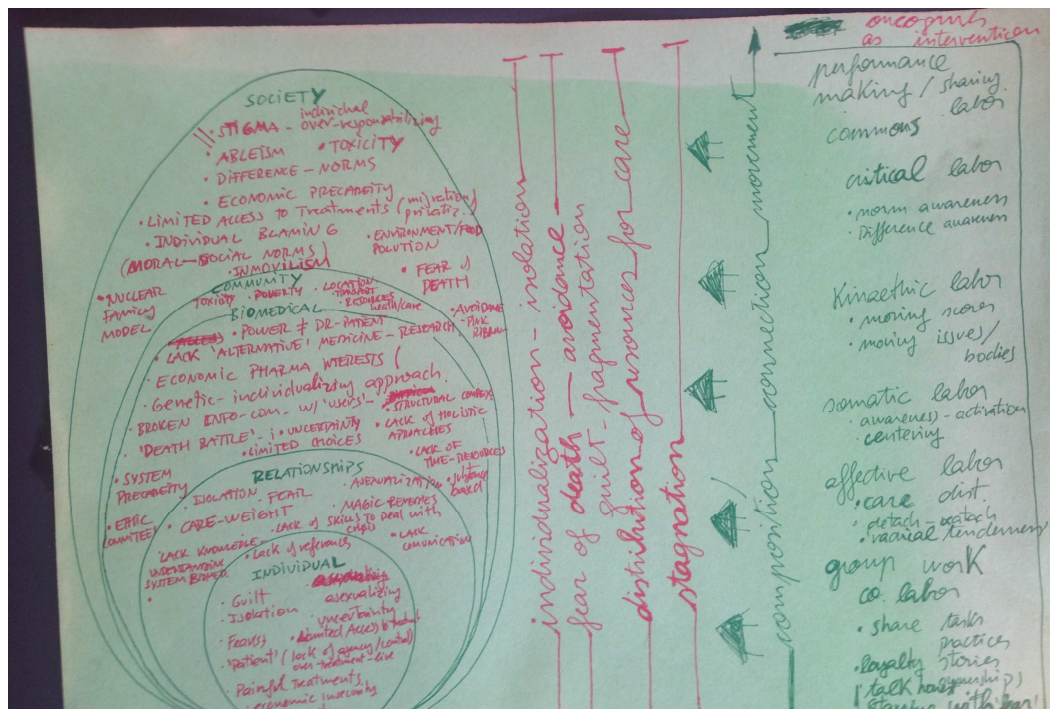 oncogrrrls
as intervention
SOCIETY
individual
!! • STIGMA – over-responsabilizing
• ABLEISM • TOXICITY
• DIFFERENCE – NORMS
• ECONOMIC PRECARITY
• LIMITED ACCESS TO Treatments (migration/
privatiz.
• INDIVIDUAL BLAMING
(MORAL–SOCIAL NORMS)
• ENVIRONMENT/FOOD
POLUTION
• INMOVILISM
• FEAR of
DEATH
• NUCLEAR
FAMILY
MODEL
COMMUNITY
TOXICITY • POVERTY • LOCATION
TRANSPORT
• RESOURCES
health/care
• AVOIDANCE
PINK
RIBBON
BIOMEDICAL
• POWER ≠ DR-PATIENT
• LACK 'ALTERNATIVE' MEDICINE – RESEARCH
• ECONOMIC PHARMA INTERESTS
• Genetic – individualizing approach
• BROKEN INFO-COM – w/ 'users' –
• STRUCTURAL COMPLEX.
• 'DEATH BATTLE' – • UNCERTAINTY
• LIMITED CHOICES
• LACK of HOLISTIC
APROACHES
• LACK OF
TIME-RESOURCES
• substance
based
• SYSTEM
PRECARITY
• ETHIC
COMMITEES
RELATIONSHIPS
• ISOLATION • FEAR
• CARE-WEIGHT
• ASEXUALIZATION
• MAGIC REMEDIES
• LACK of SKILLS TO DEAL with
crisis
• LACK
COMUNICATION
• LACK KNOWLEDGE
UNDERSTANDING
SYSTEM BIOMED.
• Lack of references
INDIVIDUAL
• Guilt
• Isolation
• Fear(s)
asexualizing
uncertainty
• Limited Access to
• 'Patient' (lack of agency/control
over-treatment-live
• Painful treatments
economic insecurity
individualization – isolation
fear of death — avoidance
guilt – fragmentation
distribution of resources for care
stagnation
composition connection movement
performance
making / sharing
labor
commons
critical labor
• norm awareness
• Difference awareness
Kinaethic labor
• moving scores
• moving issues/
bodies
somatic labor
awareness – activation
• centering
affective labor
• care dist.
• detach – watach
• radical tenderness
group work
co. labor
• share tasks
practices
stories
• loyalty
talk